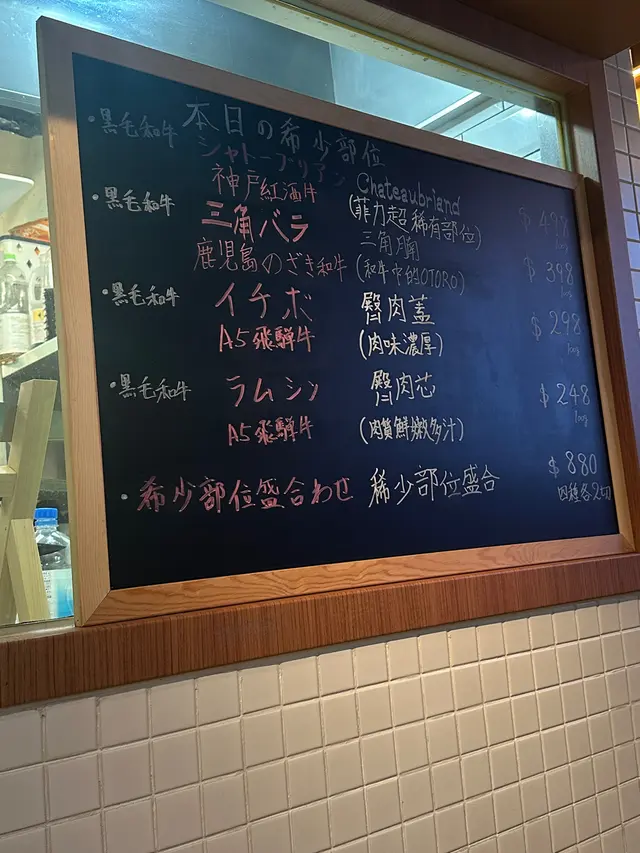 本日の希少部位
・黒毛和牛 シャトーブリアン Chateaubriand $498
神戸紅酒牛 (菲力超稀有部位) 100g
・黒毛和牛 三角バラ 三角腩 $398
鹿児島のざき和牛 (和牛中的OTORO) 100g
・黒毛和牛 イチボ 臀肉蓋 $298
A5飛騨牛 (肉味濃厚) 100g
・黒毛和牛 ラムシン 臀肉芯 $248
A5飛騨牛 (肉質鮮嫩多汁) 100g
・希少部位盛合わせ 稀少部位盛合 $880
四種各2切